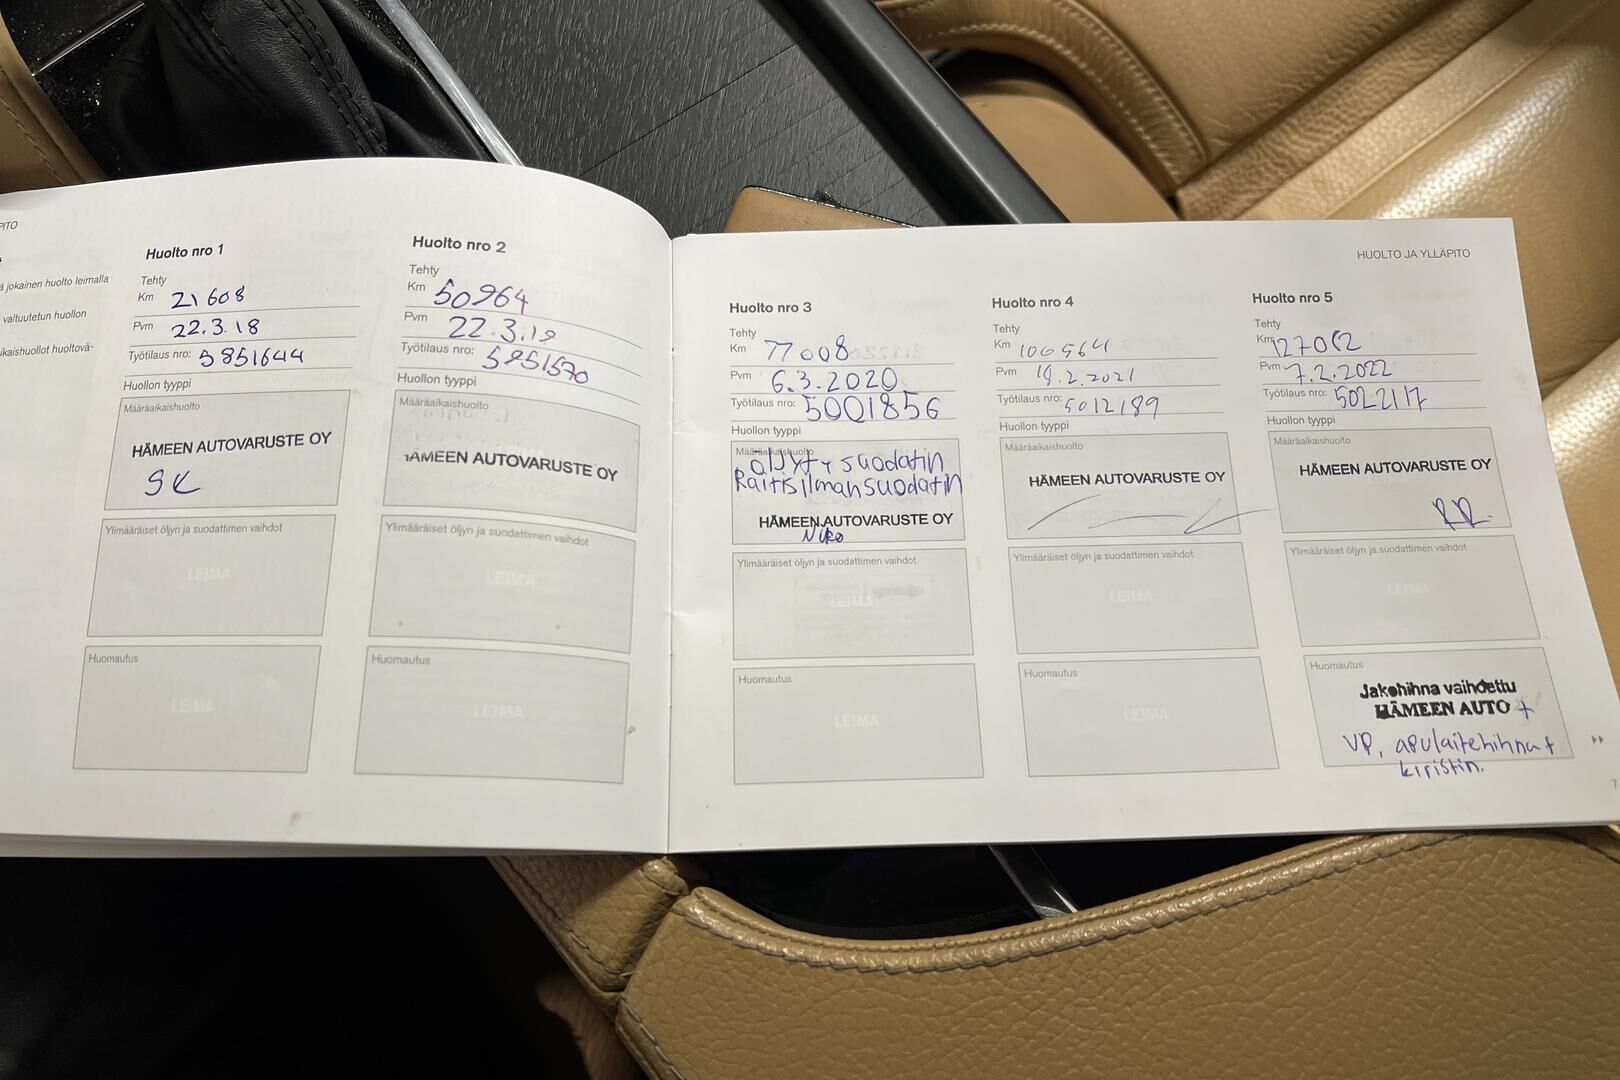 PITO
ä jokainen huolto leimalla
valtuutetun huollon
ikaishuollot huoltovä-
Huolto nro 1
Tehty
Km 21608
Pvm 22.3.18
Työtilaus nro: 5851644
Huollon tyyppi
Määräaikaishuolto
HÄMEEN AUTOVARUSTE OY
SK
Ylimääräiset öljyn ja suodattimen vaihdot
LEIMA
Huomautus
LEIMA
Huolto nro 2
Tehty
Km 50964
Pvm 22.3.19
Työtilaus nro: 5951570
Huollon tyyppi
Määräaikaishuolto
HÄMEEN AUTOVARUSTE OY
Ylimääräiset öljyn ja suodattimen vaihdot
LEIMA
Huomautus
LEIMA
HUOLTO JA YLLÄPITO
Huolto nro 3
Tehty
Km 77008
Pvm 6.3.2020
Työtilaus nro: 5001856
Huollon tyyppi
Määräaikaishuolto
öljyt + suodatin
Raitisilmansuodatin
HÄMEEN AUTOVARUSTE OY
Niko
Ylimääräiset öljyn ja suodattimen vaihdot
LEIMA
Huomautus
LEIMA
Huolto nro 4
Tehty
Km 100564
Pvm 19.2.2021
Työtilaus nro: 5012189
Huollon tyyppi
Määräaikaishuolto
HÄMEEN AUTOVARUSTE OY
Ylimääräiset öljyn ja suodattimen vaihdot
LEIMA
Huomautus
LEIMA
Huolto nro 5
Tehty
Km 127012
Pvm 7.2.2022
Työtilaus nro: 5022117
Huollon tyyppi
Määräaikaishuolto
HÄMEEN AUTOVARUSTE OY
Ylimääräiset öljyn ja suodattimen vaihdot
LEIMA
Huomautus
Jakohihna vaihdettu
HÄMEEN AUTO +
VP, apulaitehihna +
kiristin.
7